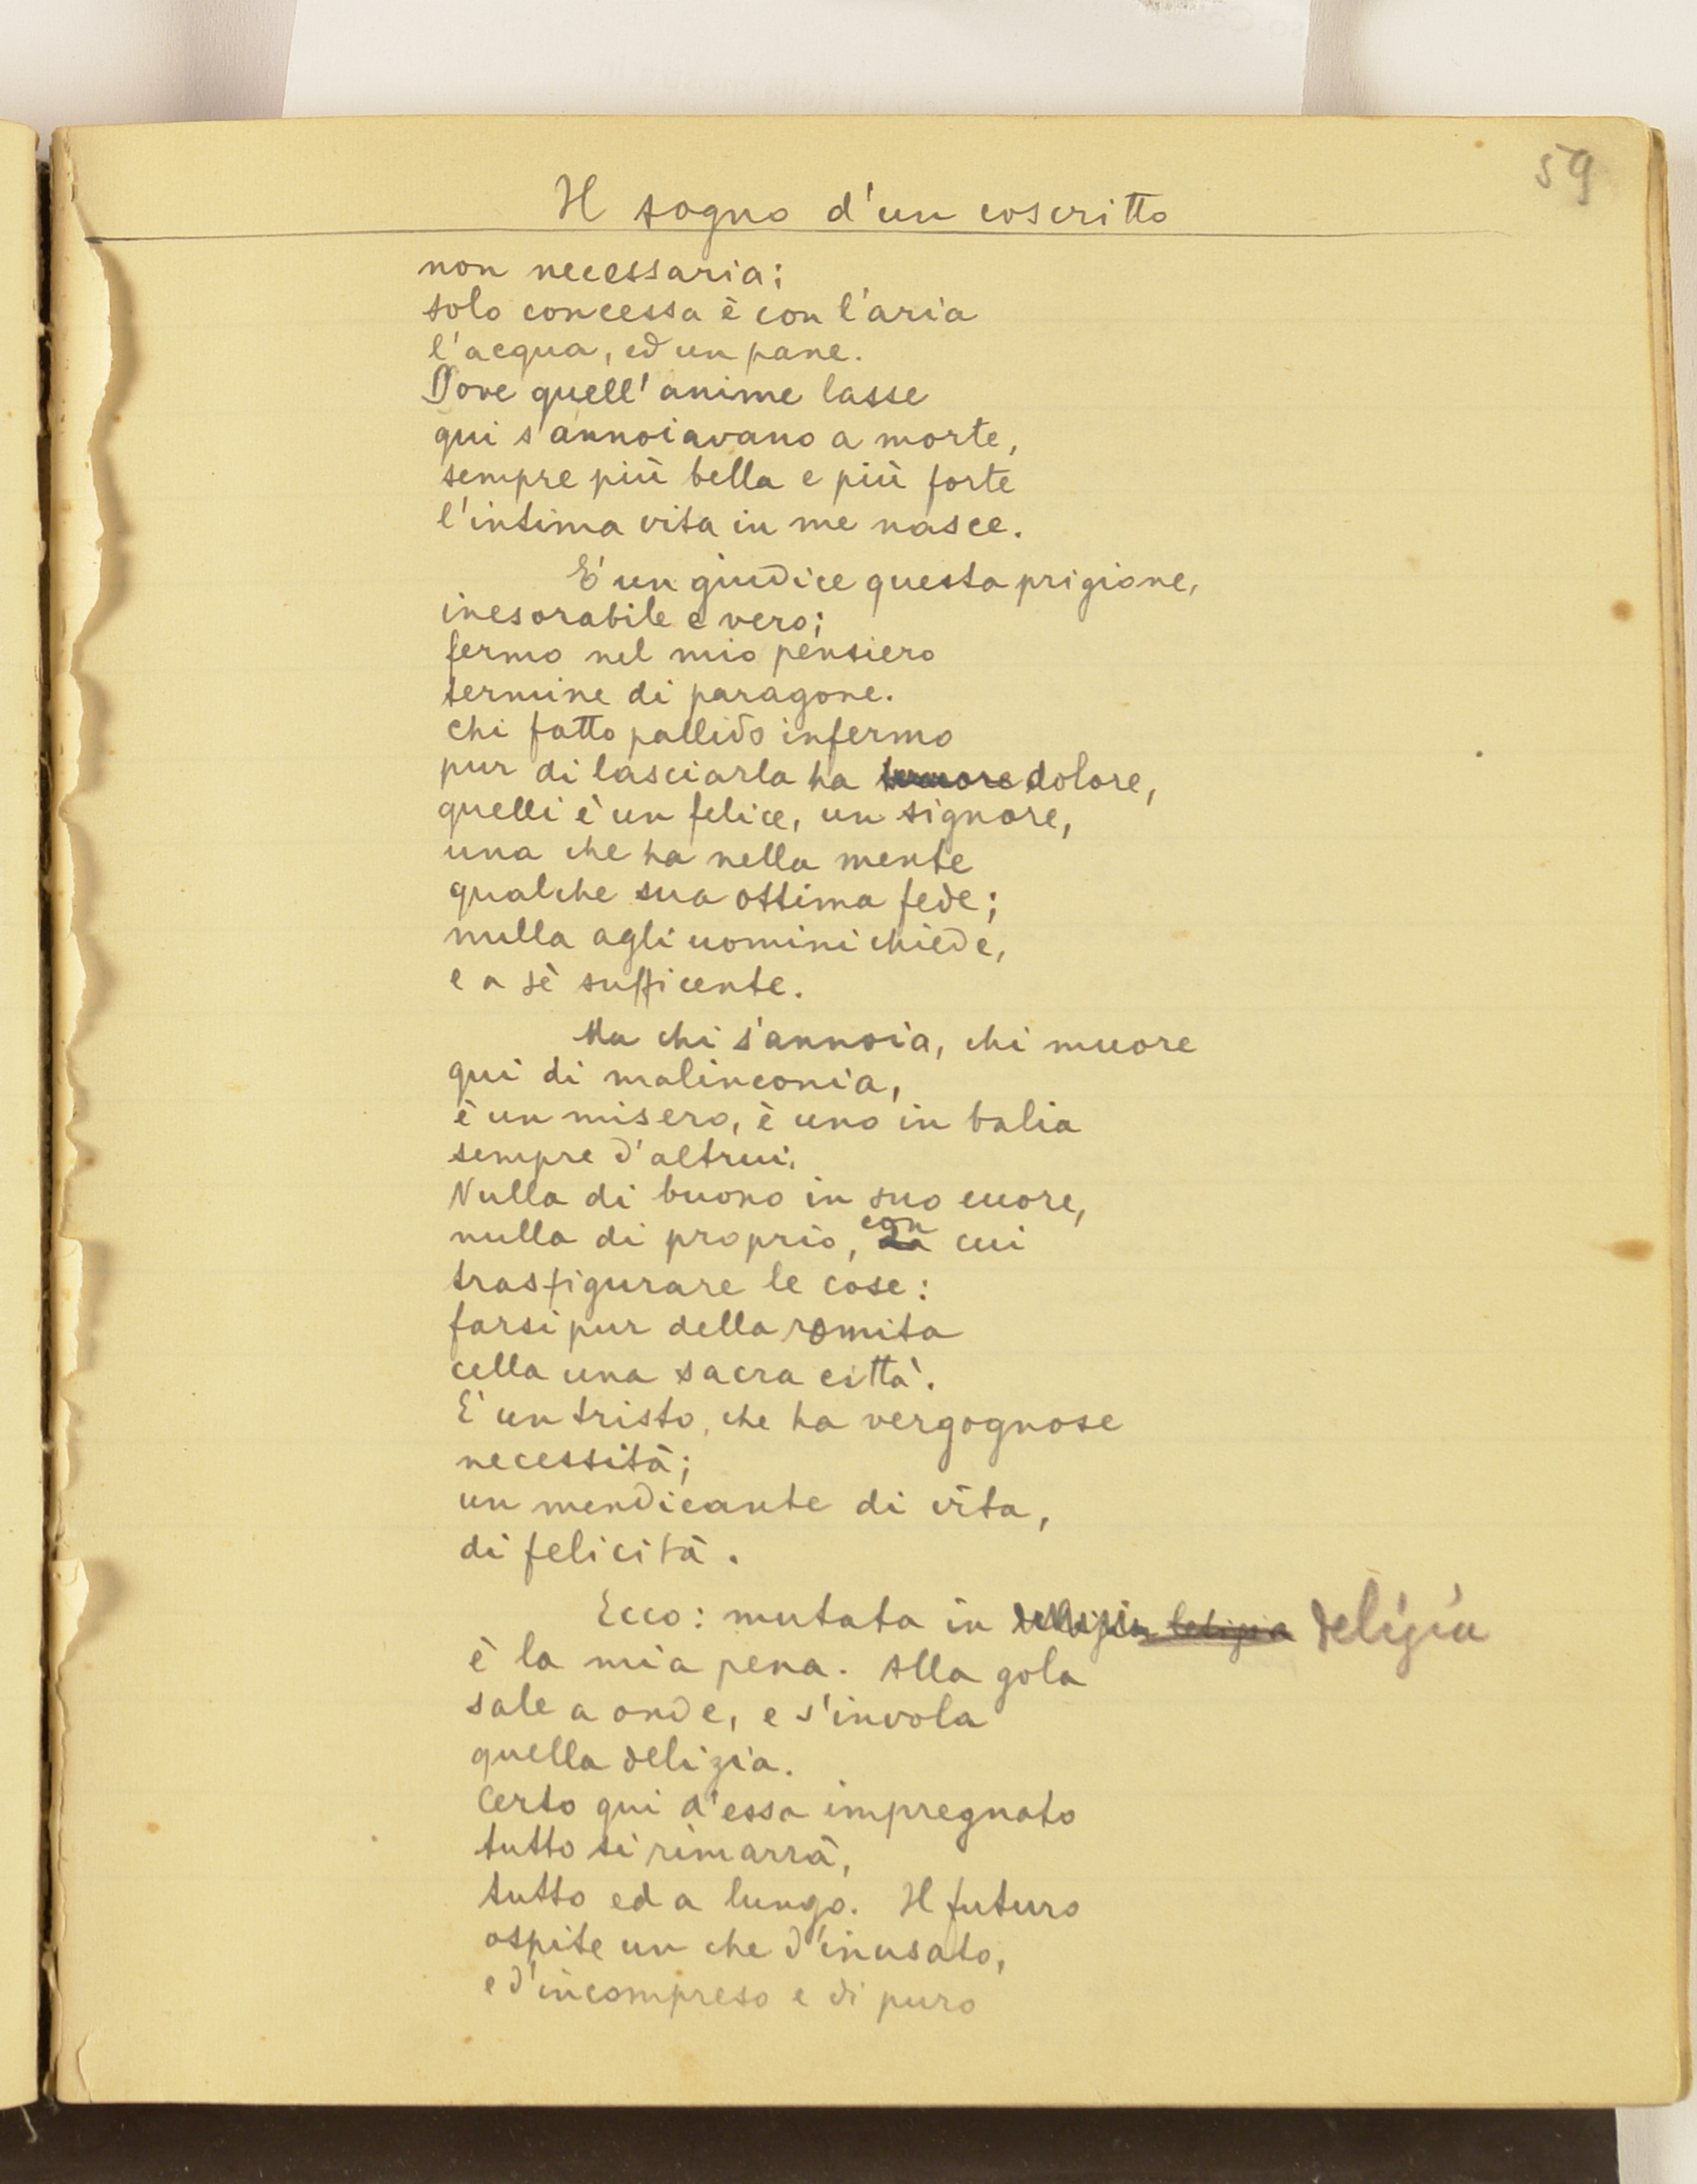 59
Il sogno d'un coscritto
non necessaria;
solo concessa è con l'aria
l'acqua, ed un pane.
Dove quell'anime lasse
qui s'annoiavano a morte,
sempre più bella e più forte
l'intima vita in me nasce.
E' un giudice questa prigione,
inesorabile e vero;
fermo nel mio pensiero
termine di paragone.
Chi fatto pallido infermo
pur di lasciarla ha dolore,
quelli è un felice, un signore,
una che ha nella mente
qualche sua ottima fede;
nulla agli uomini chiede,
e a sè sufficente.
Ma chi s'annoia, chi muore
qui di malinconia,
è un misero, è uno in balia
sempre d'altrui.
Nulla di buono in suo cuore,
nulla di proprio, con cui
trasfigurare le cose:
farsi pur della romita
cella una sacra città.
E' un tristo, che ha vergognose
necessità;
un mendicante di vita,
di felicità.
Ecco: mutata in letizia delizia
è la mia pena. Alla gola
sale a onde, e s'invola
quella delizia.
Certo qui d'essa impregnato
tutto si rimarrà,
tutto ed a lungo. Il futuro
ospite un che d'inusato,
e d'incompreso e di puro